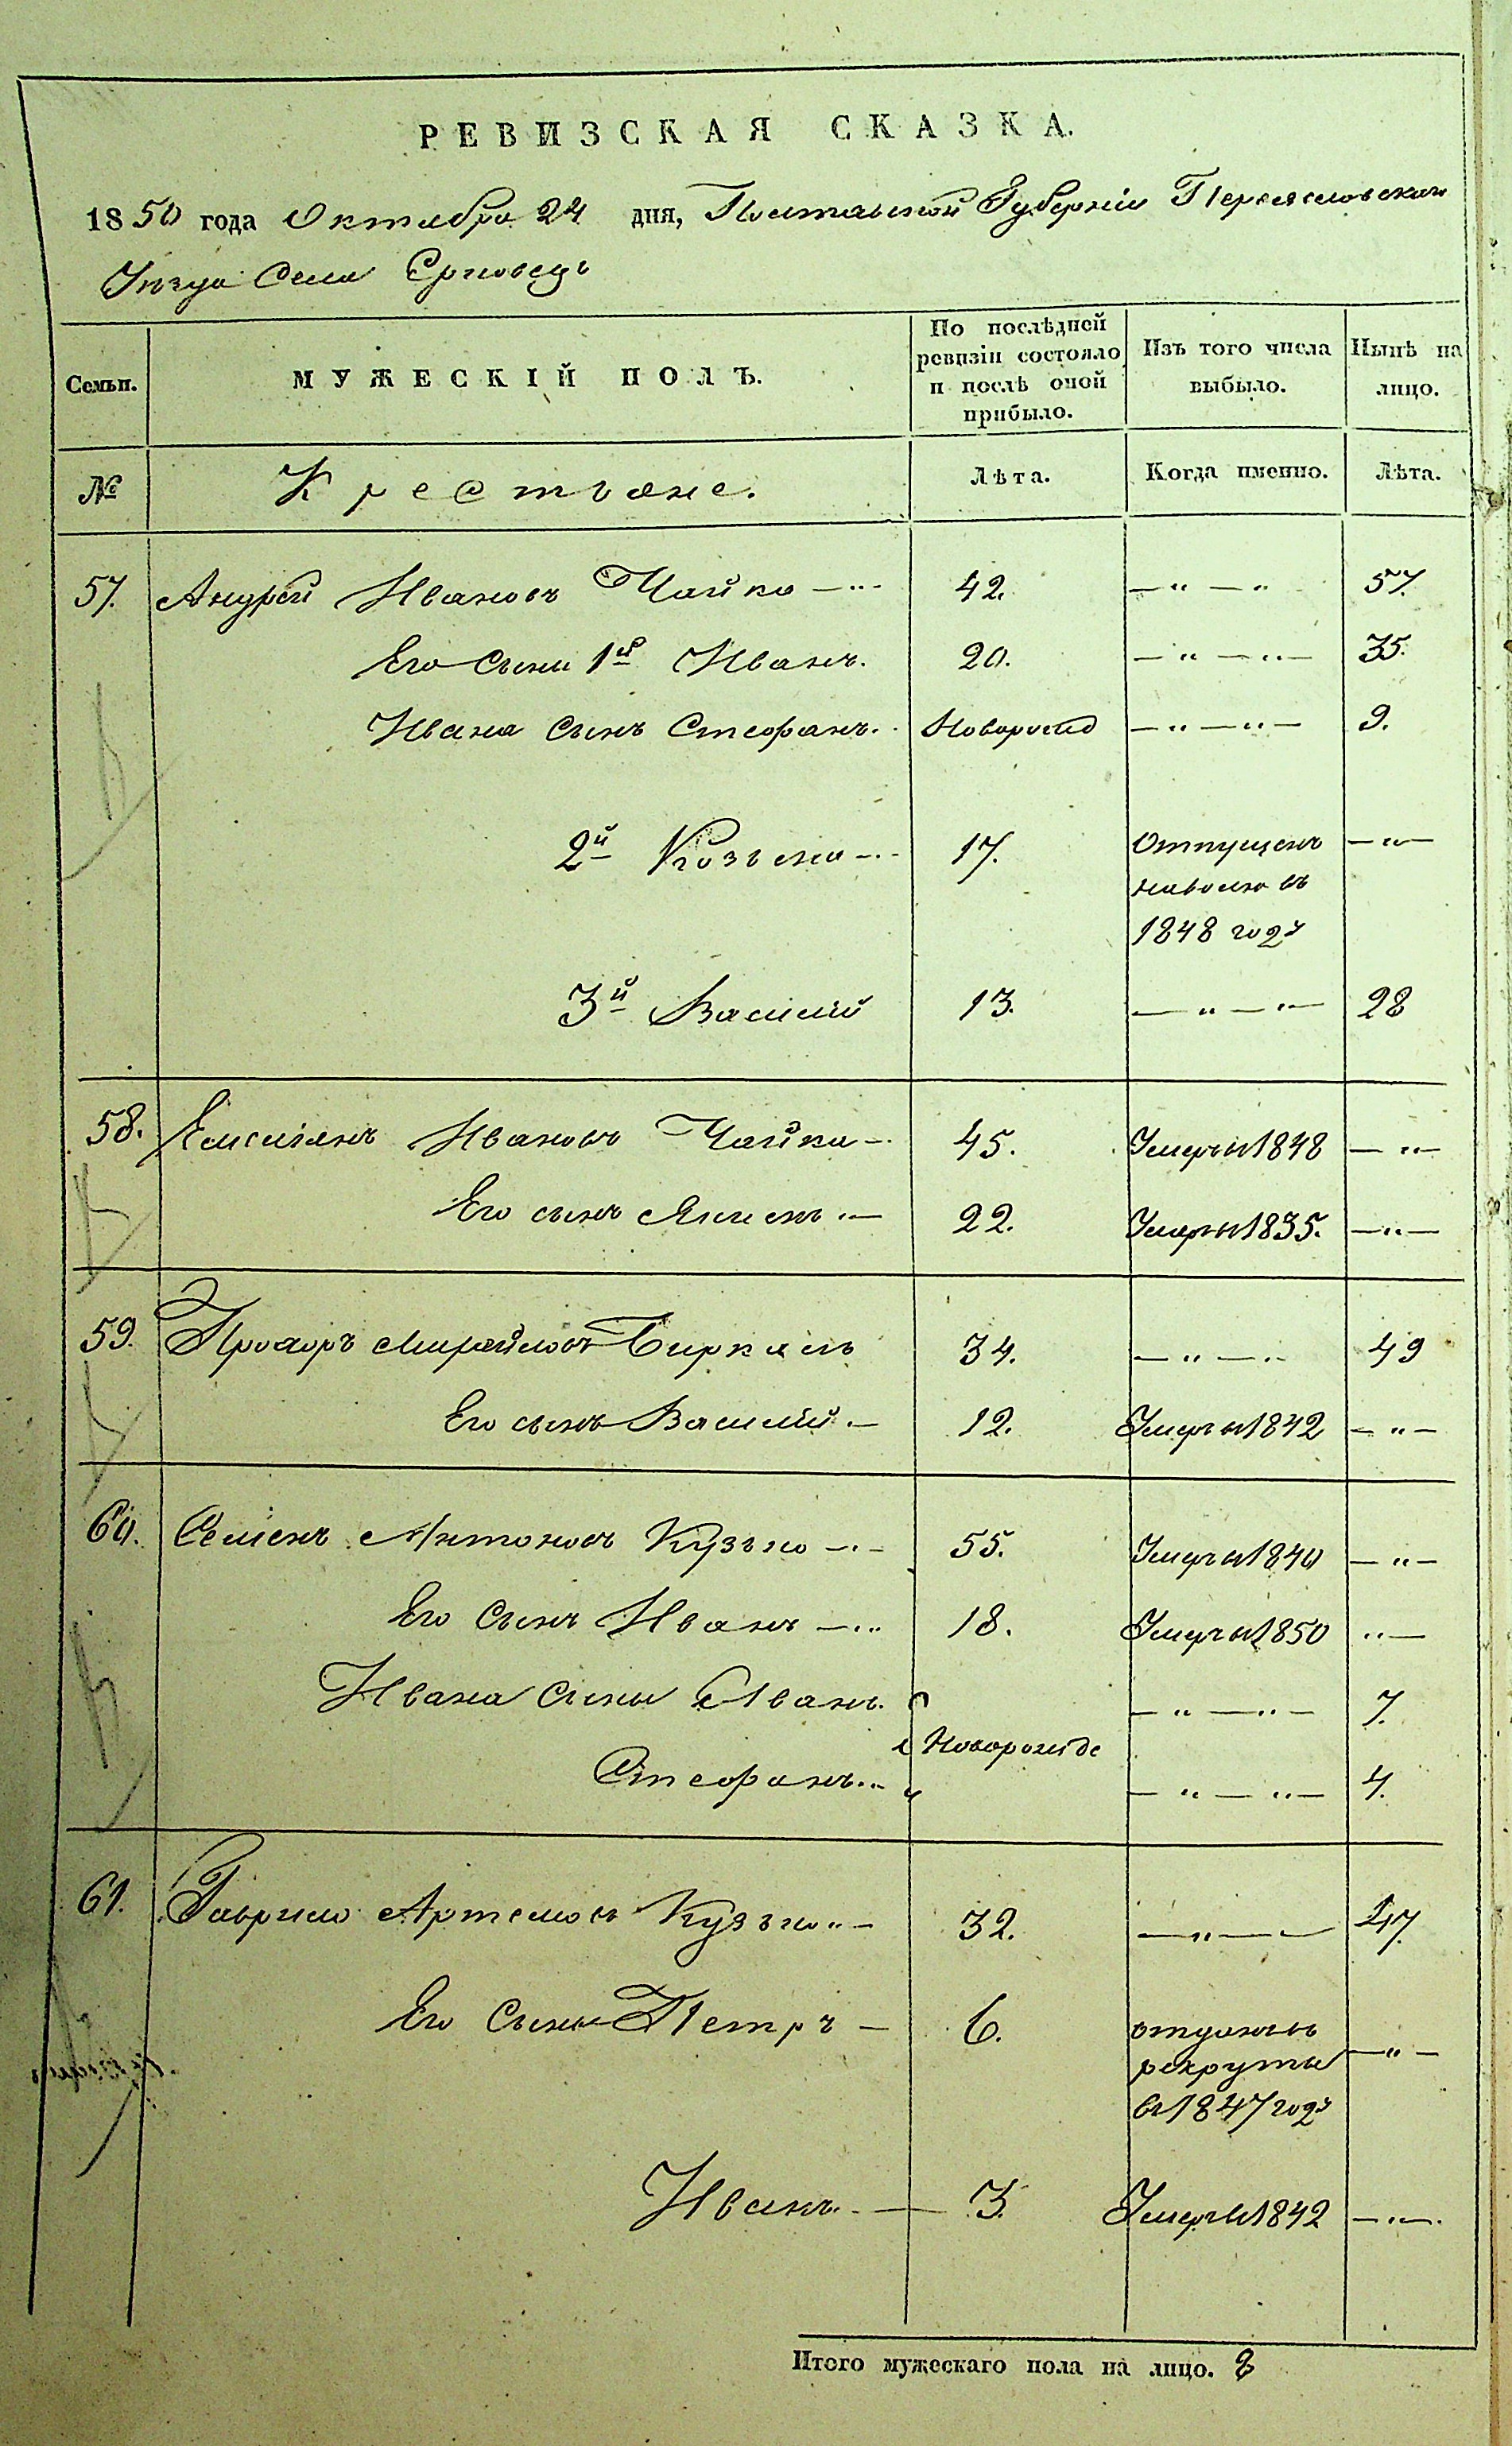 РЕВИЗСКАЯ СКАЗКА.
1850 года Октября 24 дня, Полтавской Губерніи Переяславскаго
Уѣзда Села Ерковецъ
Семьи. МУЖЕСКІЙ ПОЛЪ. По послѣдней ревизіи состояло и послѣ оной прибыло. Изъ того числа выбыло. Нынѣ на лицо.
№ Крестьяне. Лѣта. Когда именно. Лѣта.
57. Андрей Ивановъ Чайка 42. —"—" 57.
Его сыны 1й Иванъ. 20. —"—"— 35.
Ивана сынъ Стефанъ. Новорожд —"—"— 9.
2й Козьма 17. Отпущенъ —"—
наволю въ
1848 году
3й Василій 13. —"—"— 28
58. Емеліянъ Ивановъ Чайка 45. Умеръ въ 1848 —"—
Его сынъ 22. Умеръ въ 1835. —"—
59. Прохоръ Биркаль 34. —"—" 49
Его сынъ Василій 12. Умеръ въ 1842 —"—
60. Семенъ Антоновъ Кузьмо 55. Умеръ въ 1840 —"—
Его сынъ Иванъ 18. Умеръ въ 1850 "—
Ивана сыны Иванъ. —"—"— 7.
Новорожде
Стефанъ —"—"— 4.
61. Гаврило Артемовъ Кузьмо 32. —"— 47.
Его сыны Петръ — 6. отданъ въ —"—
рекруты
въ 1847 году
Иванъ. — 3. Умеръ въ 1842 —"—.
Итого мужескаго пола на лицо. 8